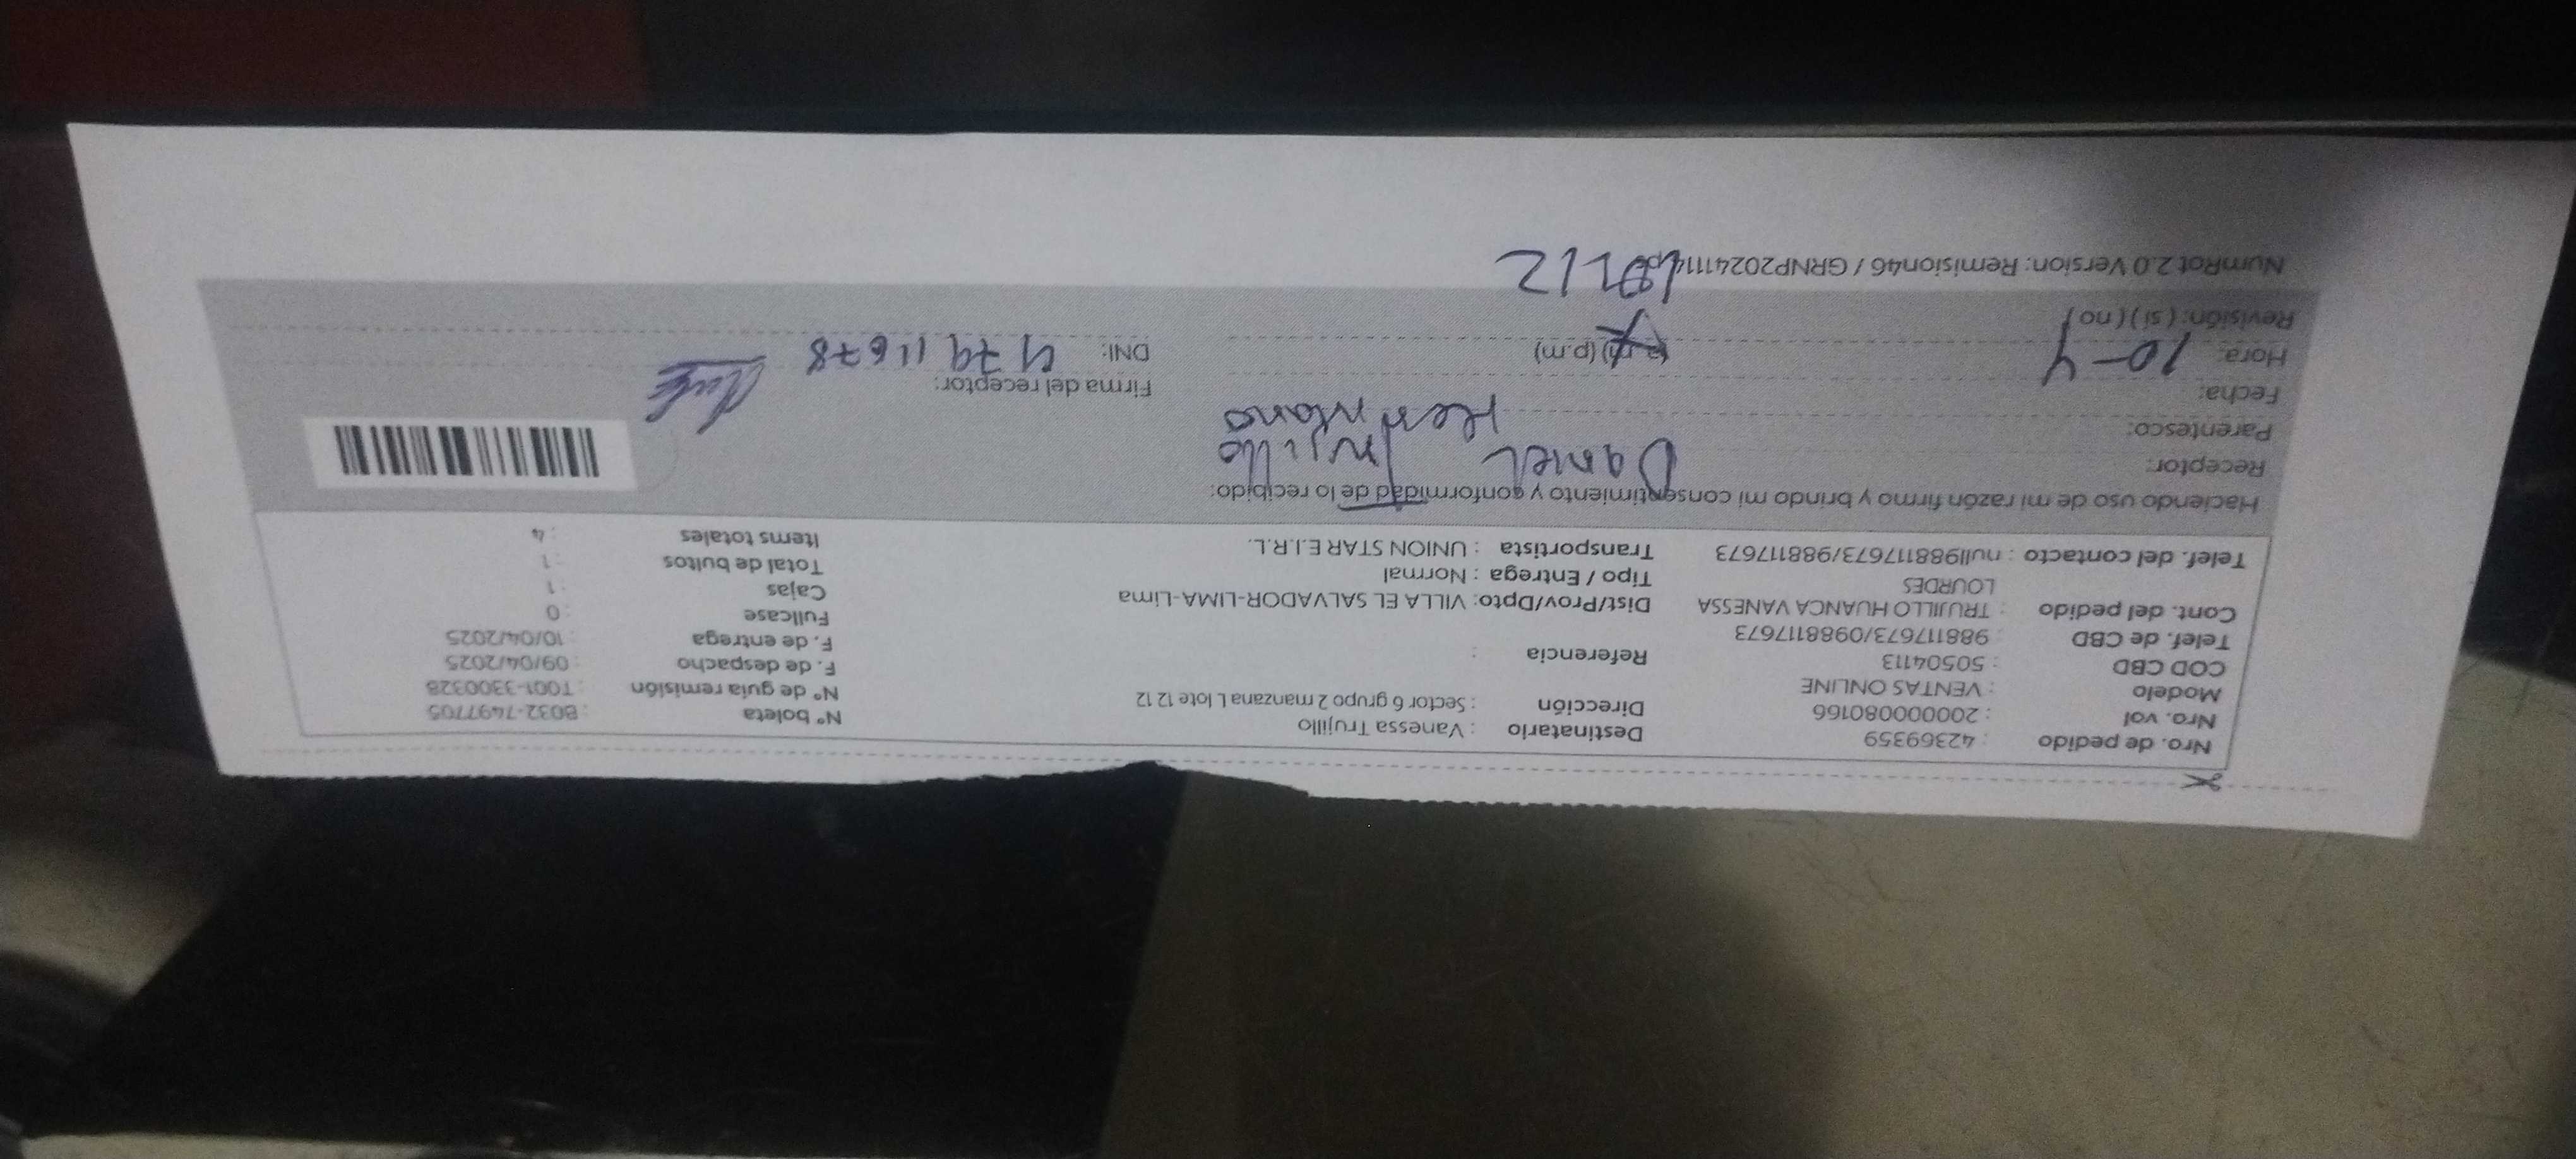 Nro. de pedido : 42369359
Nro. vol : 20000080166
Modelo : VENTAS ONLINE
COD CBD : 50504113
Telef. de CBD : 988117673/0988117673
Cont. del pedido : TRUJILLO HUANCA VANESSA
LOURDES
Telef. del contacto : null988117673/988117673
Destinatario : Vanessa Trujillo
Dirección : Sector 6 grupo 2 manzana L lote 12 12
Referencia :
Dist/Prov/Dpto: VILLA EL SALVADOR-LIMA-Lima
Tipo / Entrega : Normal
Transportista : UNION STAR E.I.R.L.
N° boleta : B032-7497705
N° de guía remisión : T001-3300328
F. de despacho : 09/04/2025
F. de entrega : 10/04/2025
Fullcase : 0
Cajas : 1
Total de bultos : 1
Items totales : 4
Haciendo uso de mi razón firmo y brindo mi consentimiento y conformidad de lo recibido:
Receptor: Daniel Trujillo
Parentesco: Hermano
Fecha: 10-4
Hora: (p.m)
Revisión: ( si ) ( no )
Firma del receptor:
DNI: 47911678
NumRot 2.0 Version: Remision46 / GRNP20241114